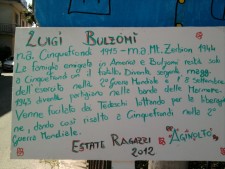 LUIGI BULZOMÌ
n.a. Cinquefrondi 1915 - m.a Mt. Zerbion 1944
La famiglia emigrata in America e Bulzomì restò solo
a Cinquefrondi con il fratello. Divenne sergente magg.
dell'esercito nella 2° Guerra Mondiale e l' 8 Settembre
1943 diventa partigiano nelle bande delle Marmore.
Venne fucilato da Tedeschi lottando per la liberazio
ne, dando così risalto a Cinquefrondi nella 2°
Guerra Mondiale.
ESTATE RAGAZZI
2012